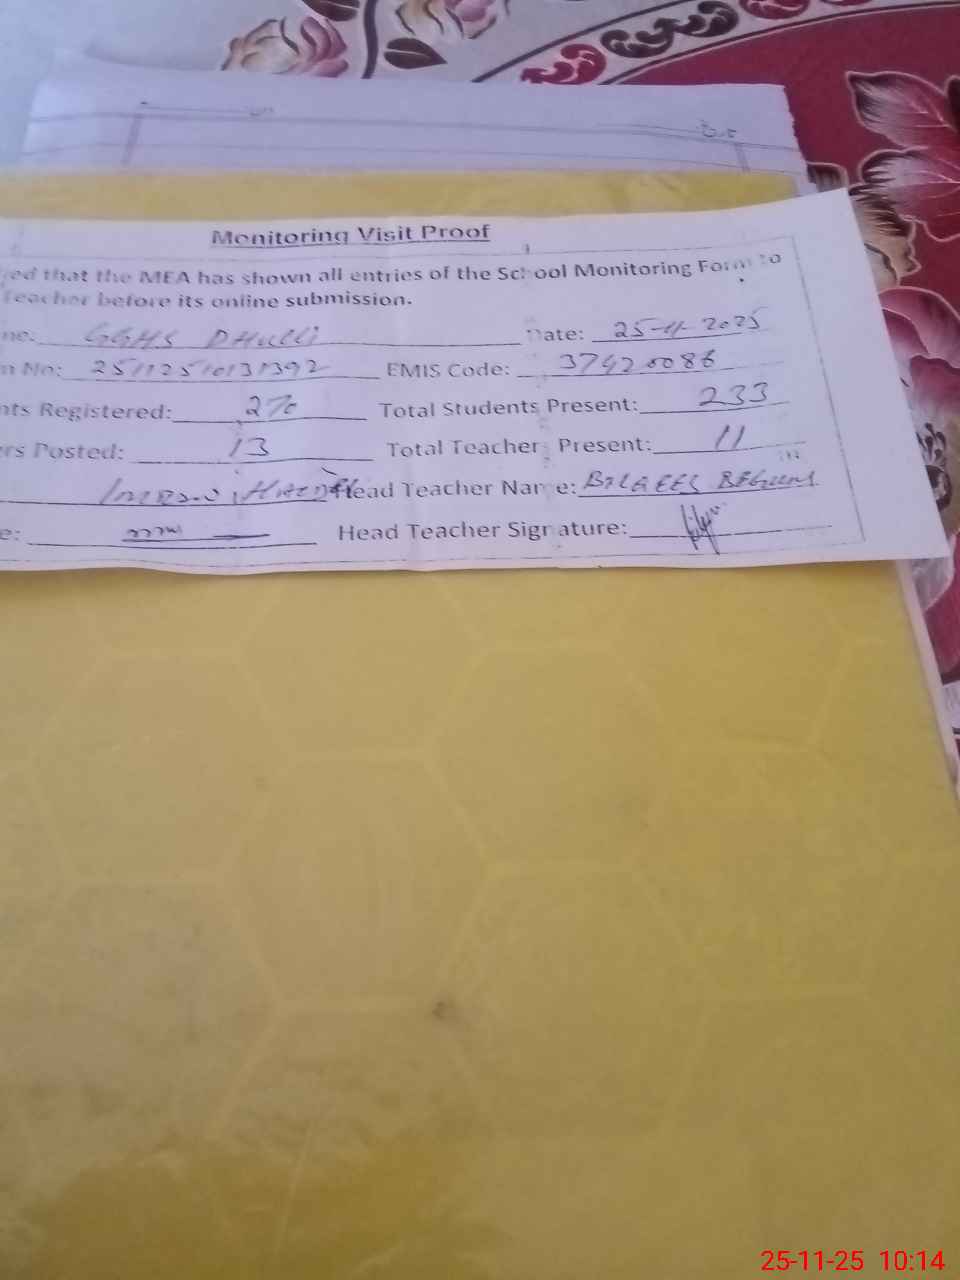 Monitoring Visit Proof
that the MEA has shown all entries of the School Monitoring Form to
Teacher before its online submission.
GGHS DHULLI Date: 25-11-2025
No: EMIS Code: 37420086
Registered: 270 Total Students Present: 233
Posted: 13 Total Teacher Present: 11
Head Teacher Name: BILQEES BEGUM
Head Teacher Signature:
25-11-25 10:14